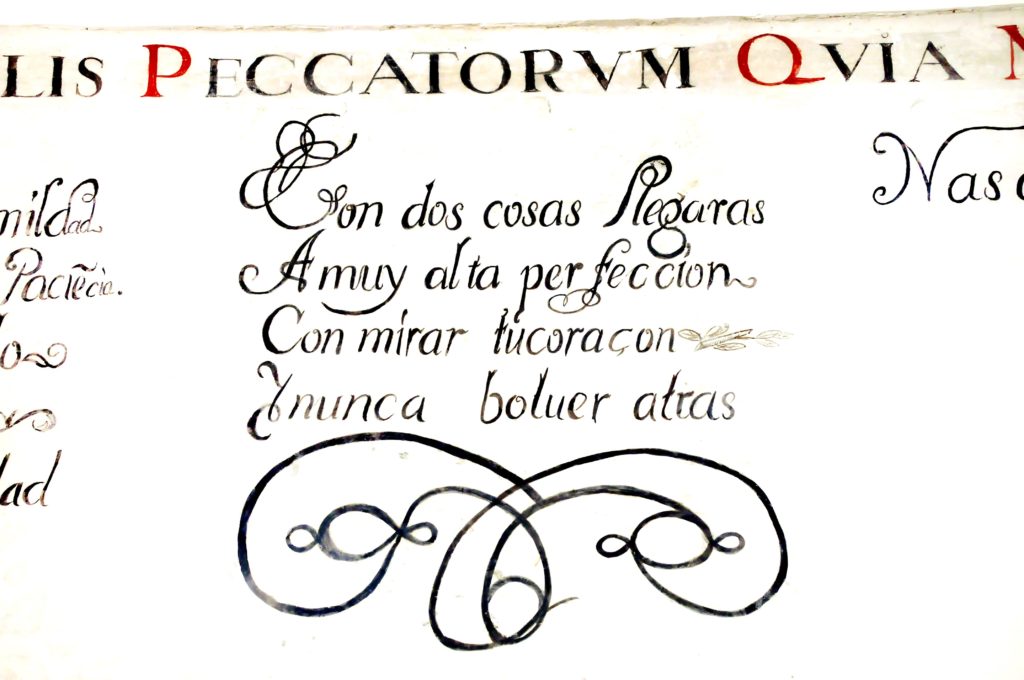 LIS PECCATORVM QVIA N
mildad
Paciẽcia.
Con dos cosas llegaras
A muy alta perfeccion
Con mirar tu coraçon
Y nunca boluer atras
dad
Nas